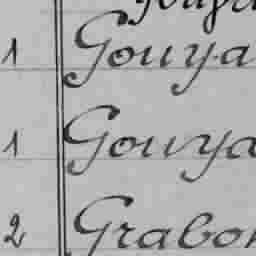 1 Gouya
1 Gouya
2 Grabo